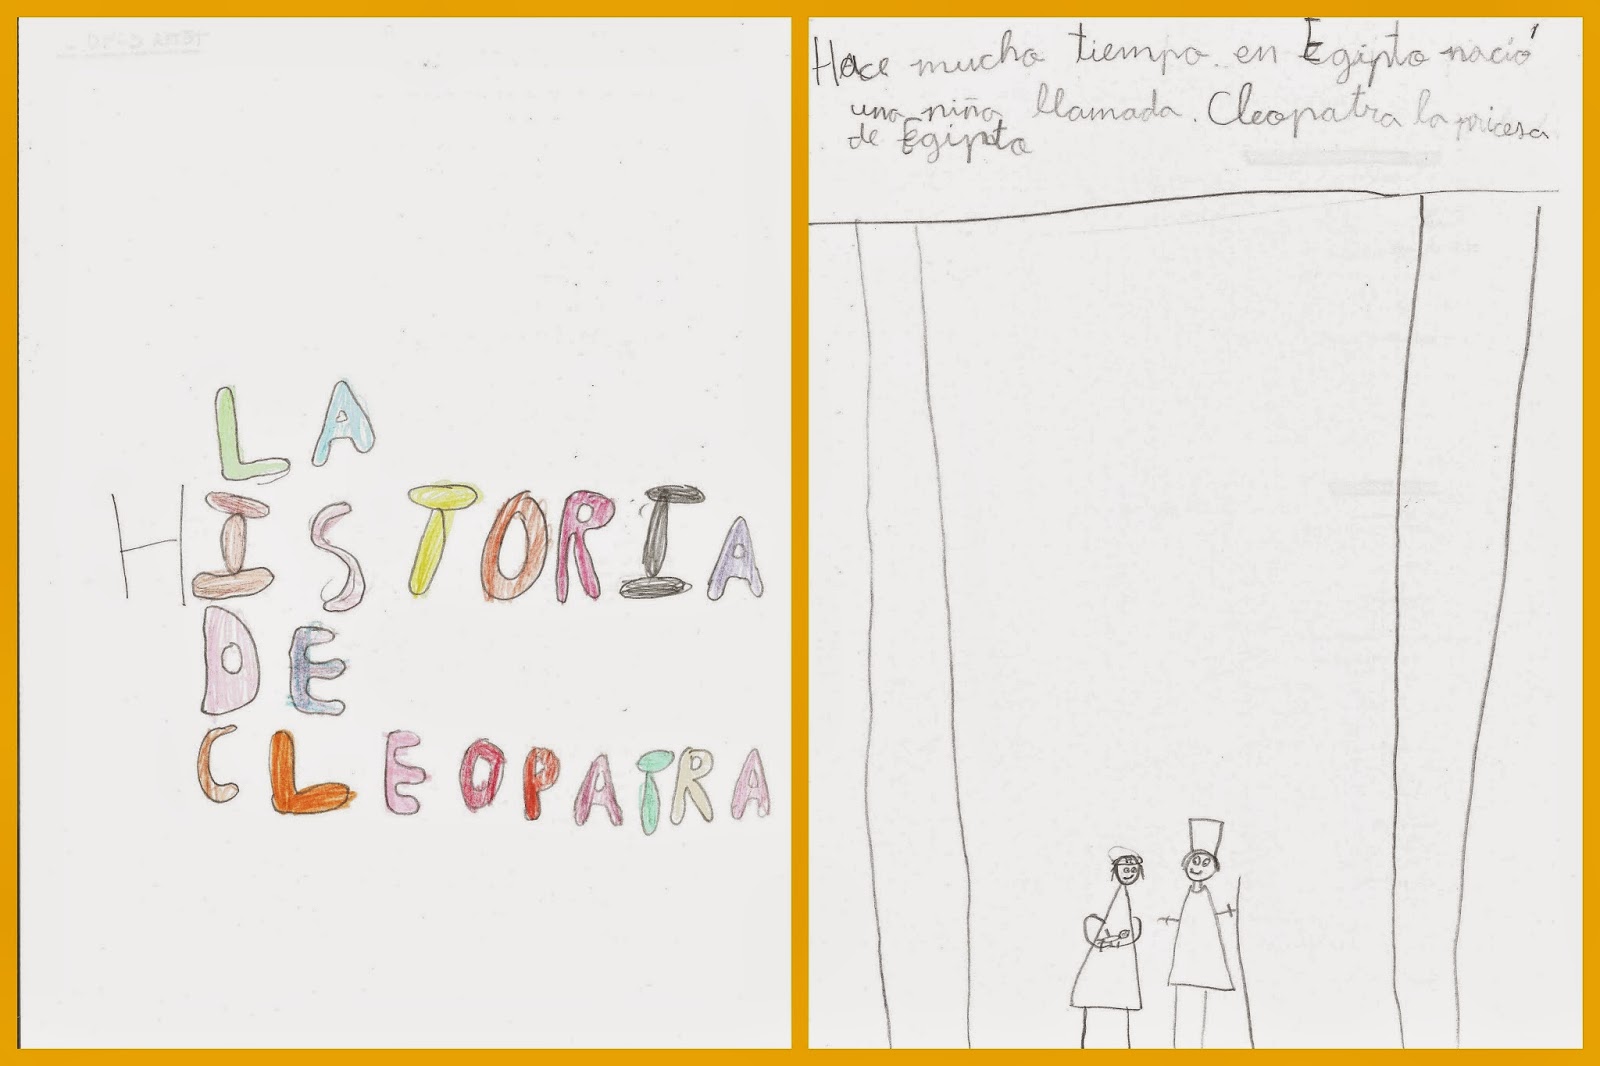 LA
HISTORIA
DE
CLEOPATRA
Hace mucho tiempo. en Egipto nació
una niña llamada. Cleopatra la pricesa
de Egipto